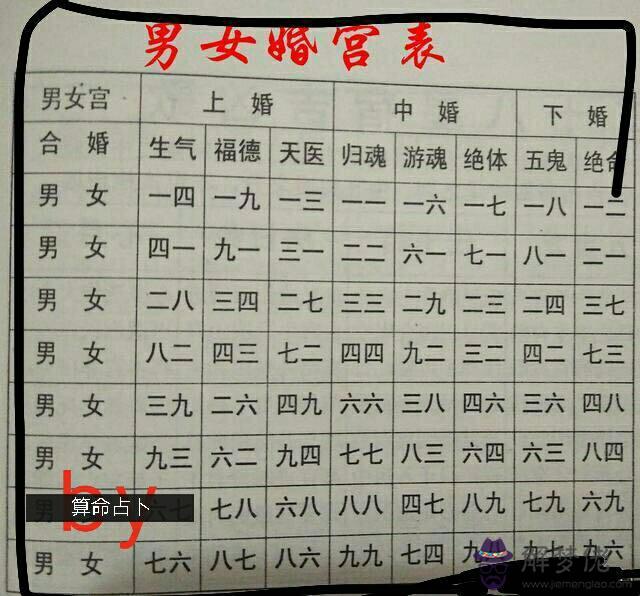 男女婚宫表
男女宫 上婚 中婚 下婚
合婚 生气 福德 天医 归魂 游魂 绝体 五鬼 绝命
男女 一四 一九 一三 一一 一六 一七 一八 一二
男女 四一 九一 三一 二二 六一 七一 八一 二一
男女 二八 三四 二七 三三 二九 二三 二四 三七
男女 八二 四三 七二 四四 九二 三二 四二 七三
男女 三九 二六 四九 六六 三八 四六 三六 四八
男女 九三 六二 九四 七七 八三 六四 六三 八四
男女 六七 七八 六八 八八 四七 八九 七九 六九
男女 七六 八七 八六 九九 七四 九 九六
by
算命占卜
解梦佬
www.jiemenglao.com